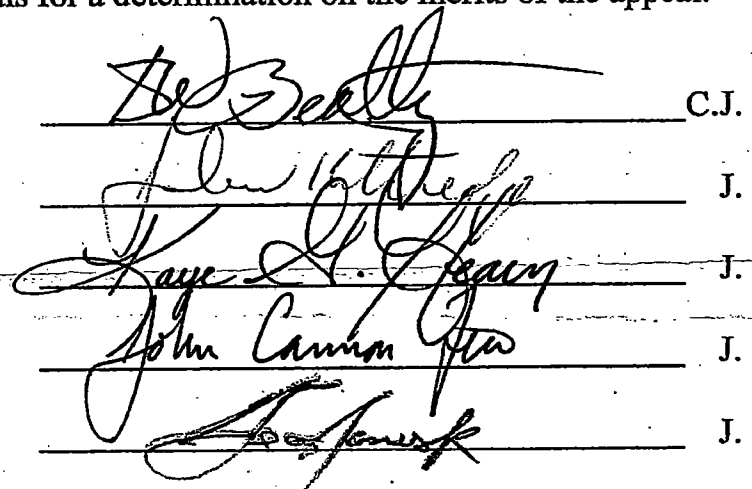 for a determination on the merits of the appeal.
Beatty C.J.
John Kittredge J.
Kaye G. Hearn J.
John Cannon Few J.
J.